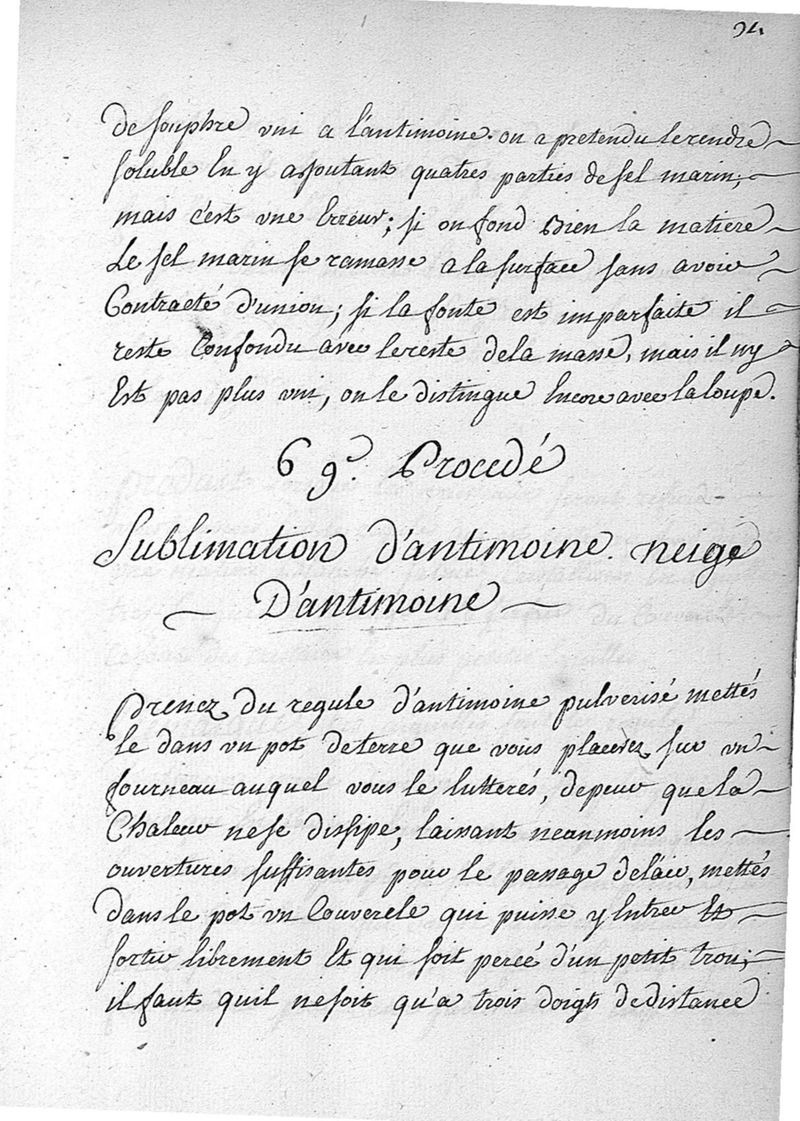 92.
de souphre vni a l'antimoine. on a pretendu le rendre
soluble En y ajoutant quatres parties de sel marin,
mais c'est vne Erreur; si on fond bien la matiere
Le sel marin se ramasse a la surface sans avoir
Contracté d'union; si la fonte est imparfaite il
reste Confondu avec le reste de la masse, mais il ny
Est pas plus vni, on le distingue Encore avec la loupe.
69e. Procedé
Sublimation d'antimoine. neige
D'antimoine
Prenez du regule d'antimoine pulverisé mettés
le dans vn pot de terre que vous placerez sur vn
fourneau auquel vous le lutterés, de peur que la
Chaleur ne se dissipe, laissant neanmoins les
ouvertures suffisantes pour le passage de l'air, mettés
dans le pot vn Couvercle qui puisse y Entrer Et
sortir librement Et qui soit percé d'un petit trou;
il faut quil ne soit qu'a trois doigts de distance